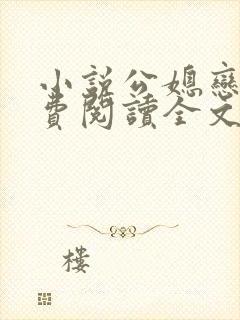 小說公媳戀
費閱讀全文
樓